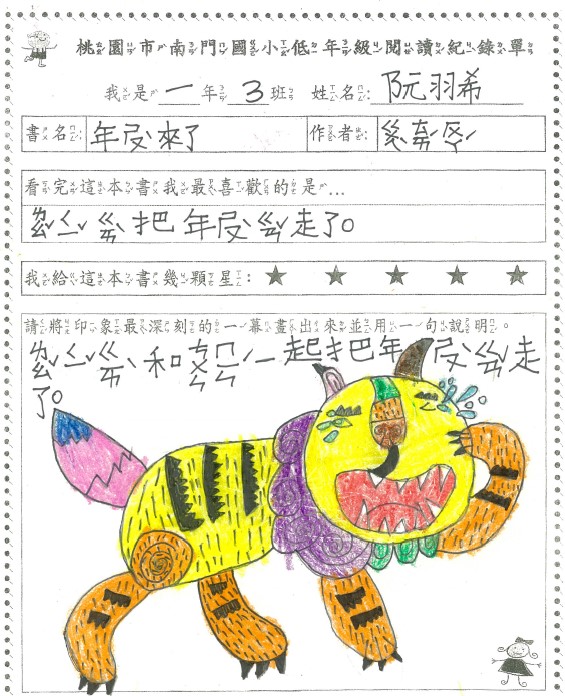 桃園市南門國小低年級閱讀紀錄單
我是一年3班 姓名:阮羽希
書名: 年ㄕㄡˋ來了 作者:
看完這本書我最喜歡的是…
把年ㄕㄡˋㄍㄢˇ走了。
我給這本書幾顆星: ★ ★ ★ ★ ★
請將印象最深刻的一幕畫出來並用一句說明。
和 一起把年ㄕㄡˋㄍㄢˇ走
了。